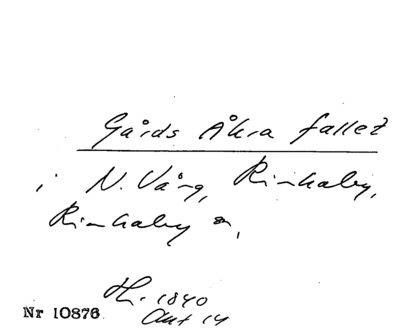 Gårds Åkra fallet
i N. Vång, Rinkaby,
Rinkaby sn,
H. 1840
Akt 14
Nr 10876